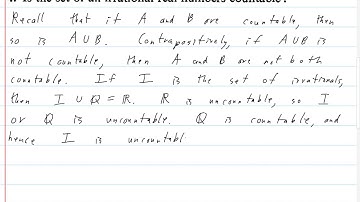 is the set of all irrational real numbers countable?
Recall that if A and B are countable, then
so is A∪B. Contrapositively, if A∪B is
not countable, then A and B are not both
countable. If I is the set of irrationals,
then I ∪ Q = R. R is uncountable, so I
or Q is uncountable. Q is countable, and
hence I is uncountabl